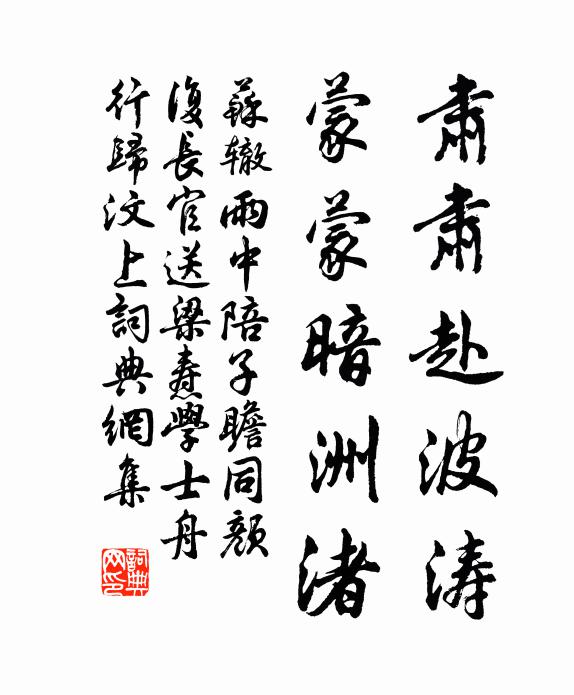 肅肅赴波涛
蒙蒙暗洲渚
蘇辙雨中陪子瞻同顏
復長官送梁焘學士舟
行歸汶上詞典網集
詞典网印